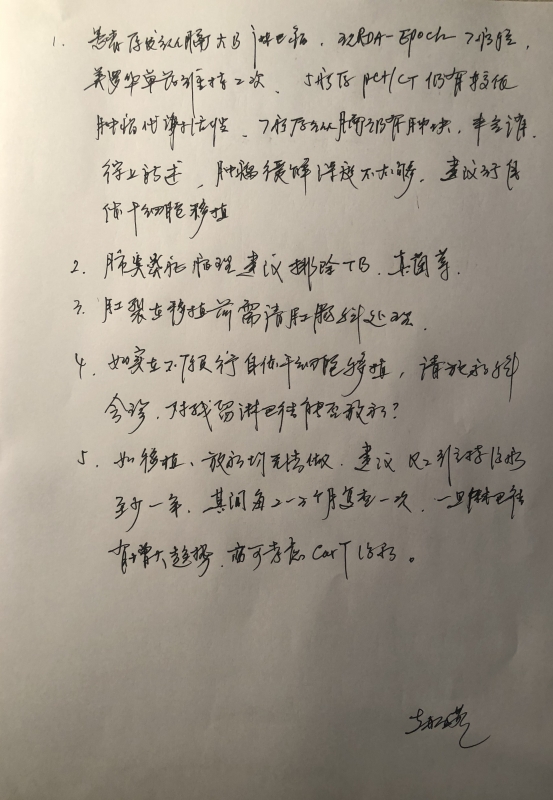 1. 患者原发纵膈大B淋巴瘤，R-DA-Epoch 7疗程，
美罗华单药维持2次，5疗后PET/CT仍有较低
肿瘤代谢活性，7疗后纵膈仍有肿块，
综上所述，肿瘤缓解深度不太够，建议行自
体干细胞移植
2. 肺炎 处理建议排除TB、真菌等.
3. 肛裂在移植前需请肛肠科处理.
4. 如实在不愿行自体干细胞移植，请放疗科
会诊，对残留淋巴结能否放疗？
5. 如移植、放疗均无法做，建议R2维持治疗
至少一年，其间每2-3个月复查一次，一旦淋巴结
有增大趋势，尚可考虑CarT治疗。